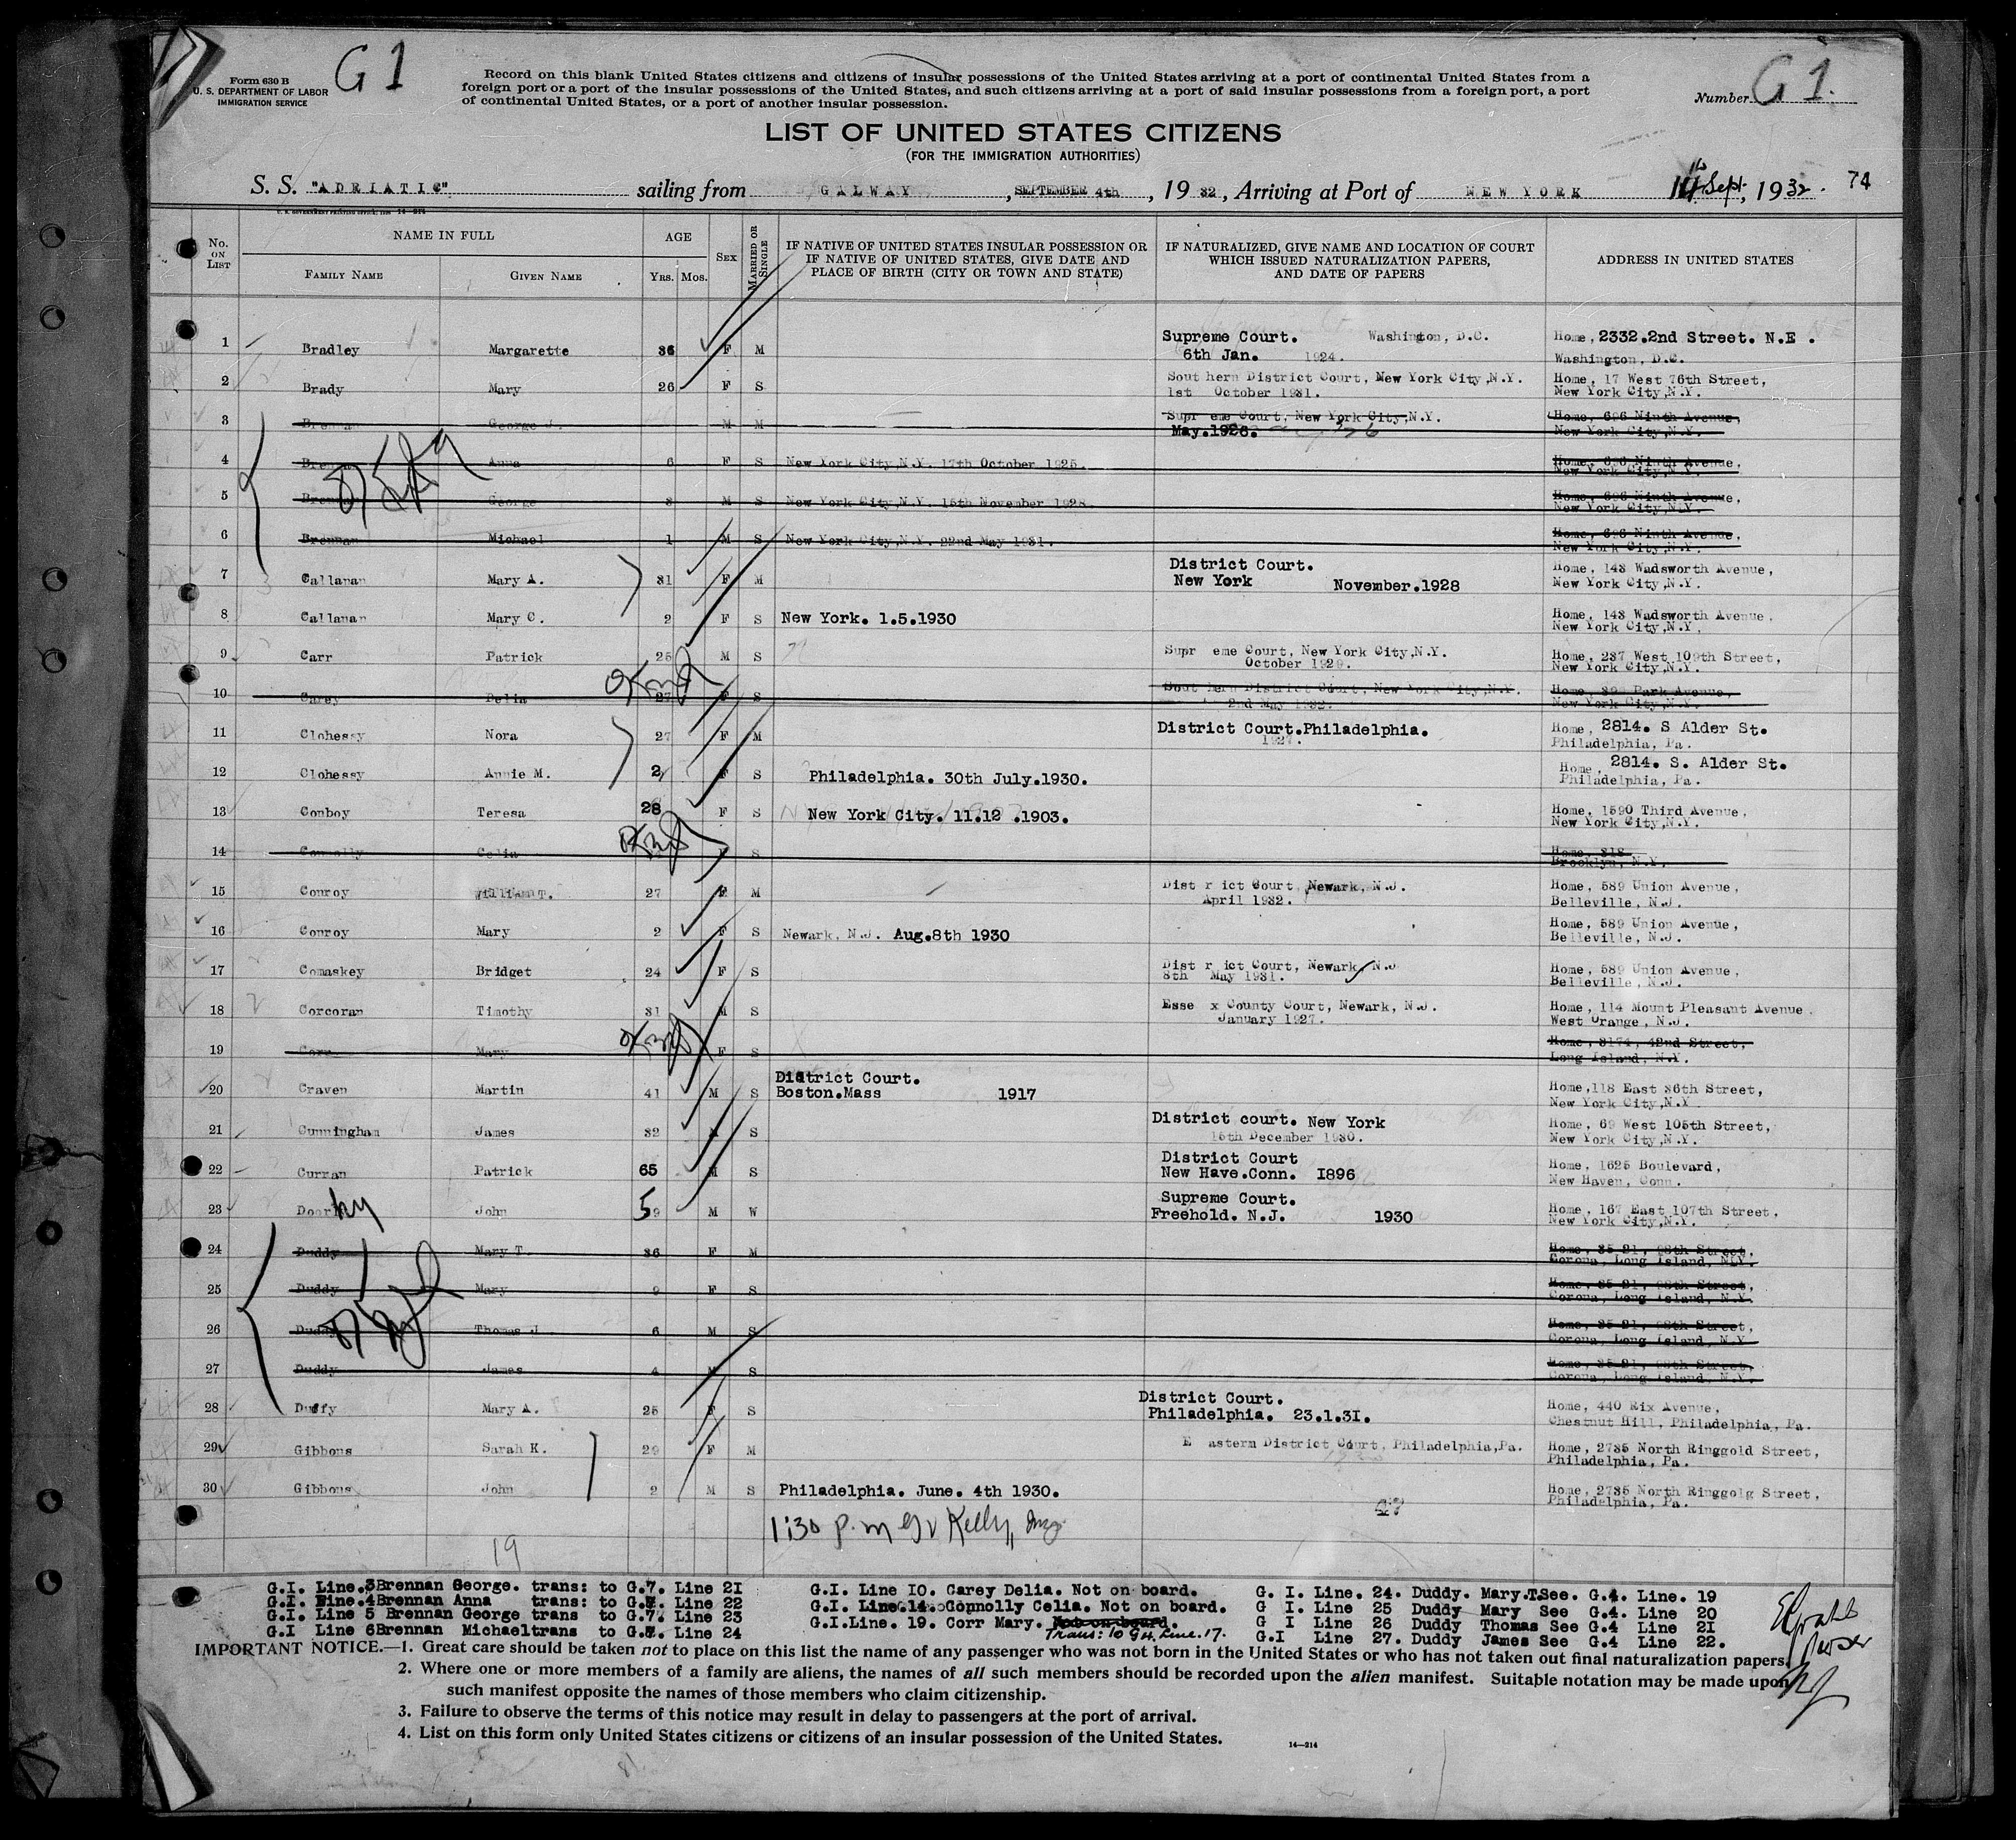 Form 630 B
U. S. DEPARTMENT OF LABOR
IMMIGRATION SERVICE
G1
Record on this blank United States citizens and citizens of insular possessions of the United States arriving at a port of continental United States from a
foreign port or a port of the insular possessions of the United States, and such citizens arriving at a port of said insular possessions from a foreign port, a port
of continental United States, or a port of another insular possession.
Number G1.
LIST OF UNITED STATES CITIZENS
(FOR THE IMMIGRATION AUTHORITIES)
S. S. "ADRIATIC" sailing from GALWAY, SEPTEMBER 4th, 1932, Arriving at Port of NEW YORK Sept., 1932. 74
No. ON LIST
NAME IN FULL
FAMILY NAME GIVEN NAME
AGE
YRS. MOS.
SEX
MARRIED OR SINGLE
IF NATIVE OF UNITED STATES INSULAR POSSESSION OR
IF NATIVE OF UNITED STATES, GIVE DATE AND
PLACE OF BIRTH (CITY OR TOWN AND STATE)
IF NATURALIZED, GIVE NAME AND LOCATION OF COURT
WHICH ISSUED NATURALIZATION PAPERS,
AND DATE OF PAPERS
ADDRESS IN UNITED STATES
1 Bradley Margarette 36 F M Supreme Court. Washington, D.C. Home, 2332.2nd Street. N.E.
6th Jan. 1924. Washington, D.C.
2 Brady Mary 26 F S Southern District Court, New York City,N.Y. Home, 17 West 76th Street,
1st October 1931. New York City,N.Y.
3 Brennan George J. M M Supreme Court, New York City,N.Y. Home, 696 Ninth Avenue,
May.1926. New York City,N.Y.
4 Brennan Anna 6 F S New York City,N.Y. 17th October 1925. Home, 696 Ninth Avenue,
New York City,N.Y.
5 Brennan George 3 M S New York City,N.Y. 15th November 1928. Home, 696 Ninth Avenue,
New York City,N.Y.
6 Brennan Michael 1 M S New York City,N.Y. 22nd May 1931. Home, 696 Ninth Avenue,
New York City,N.Y.
7 Callanan Mary A. 31 F M District Court. Home, 143 Wadsworth Avenue,
New York November.1928 New York City,N.Y.
8 Callanan Mary C. 2 F S New York. 1.5.1930 Home, 143 Wadsworth Avenue,
New York City,N.Y.
9 Carr Patrick 25 M S Supreme Court, New York City,N.Y. Home, 237 West 109th Street,
October 1929. New York City,N.Y.
10 Carey Delia 27 F S Southern District Court, New York City,N.Y. Home, 39 Park Avenue,
2nd May 1932. New York City,N.Y.
11 Clohessy Nora 27 F M District Court.Philadelphia. Home, 2814. S Alder St.
1927. Philadelphia, Pa.
12 Clohessy Annie M. 2 F S Philadelphia. 30th July.1930. Home, 2814. S. Alder St.
Philadelphia, Pa.
13 Conboy Teresa 28 F S New York City. 11.12 .1903. Home, 1590 Third Avenue,
New York City,N.Y.
14 Connolly Celia F S Home, 318
Brooklyn, N.Y.
15 Conroy William T. 27 F M District Court, Newark, N.J. Home, 589 Union Avenue,
April 1932. Belleville, N.J.
16 Conroy Mary 2 F S Newark, N.J. Aug.8th 1930 Home, 589 Union Avenue,
Belleville, N.J.
17 Comaskey Bridget 24 F S District Court, Newark, N.J Home, 589 Union Avenue,
8th May 1931. Belleville, N.J.
18 Corcoran Timothy 31 M S Essex County Court, Newark, N.J. Home, 114 Mount Pleasant Avenue.
January 1927. West Orange, N.J.
19 Corr Mary F S Home, 3174, 42nd Street,
Long Island, N.Y.
20 Craven Martin 41 M S District Court. Home,118 East 86th Street,
Boston.Mass 1917 New York City,N.Y
21 Cunningham James 32 M S District court. New York Home, 69 West 105th Street,
15th December 1930. New York City,N.Y.
22 Curran Patrick 65 M S District Court Home, 1625 Boulevard,
New Have.Conn. I896 New Haven, Conn.
23 Doorhy John 59 M W Supreme Court. Home, 167 East 107th Street,
Freehold. N.J. 1930 New York City,N.Y.
24 Duddy Mary T. 36 F M Home, 35 21, 98th Street,
Corona, Long Island, N.Y.
25 Duddy Mary 9 F S Home, 35 21, 98th Street,
Corona, Long Island, N.Y.
26 Duddy Thomas J 6 M S Home, 35 21, 98th Street,
Corona, Long Island, N.Y
27 Duddy James 4 M S Home, 35 21, 98th Street,
Corona, Long Island, N.Y.
28 Duffy Mary A. 25 F S District Court. Home, 440 Rix Avenue,
Philadelphia. 23.1.3I. Chestnut Hill, Philadelphia, Pa.
29 Gibbons Sarah K. 29 F M Eastern District Court, Philadelphia,Pa. Home, 2735 North Ringgold Street,
Philadelphia, Pa.
30 Gibbons John 2 M S Philadelphia. June. 4th 1930. Home, 2735 North Ringgolg Street,
Philadelphia, Pa.
1:30 p.m Kelly, Insp
19
G.I. Line.3Brennan George. trans: to G.7. Line 2I
G.I. Line.4Brennan Anna trans: to G.7. Line 22
G.I. Line 5 Brennan George trans to G.7. Line 23
G.I Line 6Brennan Michaeltrans to G.7. Line 24
G.I. Line IO. Carey Delia. Not on board.
G.I. Line.14. Connolly Celia. Not on board.
G.I.Line. 19. Corr Mary. Not on board.
Trans: to G4. Line.17.
G. I. Line. 24. Duddy. Mary.T.See. G.4. Line. 19
G I. Line 25 Duddy Mary See G.4. Line 20
G I Line 26 Duddy Thomas See G.4 Line 2I
G.I Line 27. Duddy James See G.4 Line 22.
Purser
IMPORTANT NOTICE.—1. Great care should be taken not to place on this list the name of any passenger who was not born in the United States or who has not taken out final naturalization papers.
2. Where one or more members of a family are aliens, the names of all such members should be recorded upon the alien manifest. Suitable notation may be made upon
such manifest opposite the names of those members who claim citizenship.
3. Failure to observe the terms of this notice may result in delay to passengers at the port of arrival.
4. List on this form only United States citizens or citizens of an insular possession of the United States.
14—214